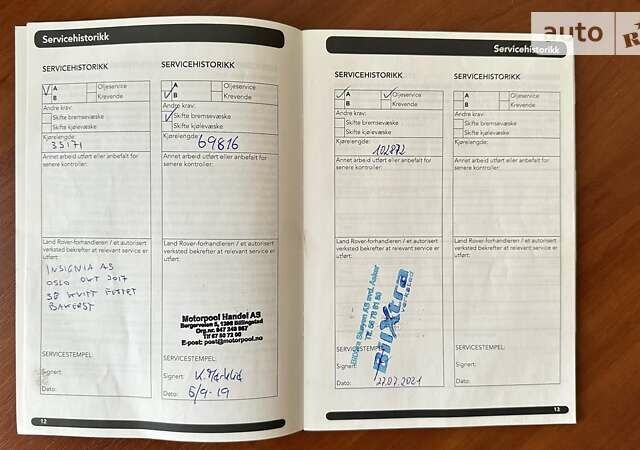 Servicehistorikk
SERVICEHISTORIKK
A
B
Oljeservice
Krevende
Andre krav:
Skifte bremsevæske
Skifte kjølevæske
Kjørelengde:
35171
Annet arbeid utført eller anbefalt for
senere kontroller:
Land Rover-forhandleren / et autorisert
verksted bekrefter at relevant service er
utført:
INSIGNIA AS
OSLO OKT 2017
SE KVITT FESTET
BAKERST
SERVICESTEMPEL:
Signert:
Dato:
12
SERVICEHISTORIKK
A
B
Oljeservice
Krevende
Andre krav:
Skifte bremsevæske
Skifte kjølevæske
Kjørelengde:
69816
Annet arbeid utført eller anbefalt for
senere kontroller:
Land Rover-forhandleren / et autorisert
verksted bekrefter at relevant service er
utført:
Motorpool Handel AS
Bergerveien 5, 1396 Billingstad
Org.nr. 947 348 867
Tlf 67 80 72 00
E-post: post@motorpool.no
SERVICESTEMPEL:
Signert:
Dato: 5/9-19
Servicehistorikk
SERVICEHISTORIKK
A
B
Oljeservice
Krevende
Andre krav:
Skifte bremsevæske
Skifte kjølevæske
Kjørelengde:
102872
Annet arbeid utført eller anbefalt for
senere kontroller:
Land Rover-forhandleren / et autorisert
verksted bekrefter at relevant service er
utført:
BilXtra
verksted
SERVICESTEMPEL:
Signert:
Dato: 27.07.2021
SERVICEHISTORIKK
A
B
Oljeservice
Krevende
Andre krav:
Skifte bremsevæske
Skifte kjølevæske
Kjørelengde:
Annet arbeid utført eller anbefalt for
senere kontroller:
Land Rover-forhandleren / et autorisert
verksted bekrefter at relevant service er
utført:
SERVICESTEMPEL:
Signert:
Dato:
13
auto